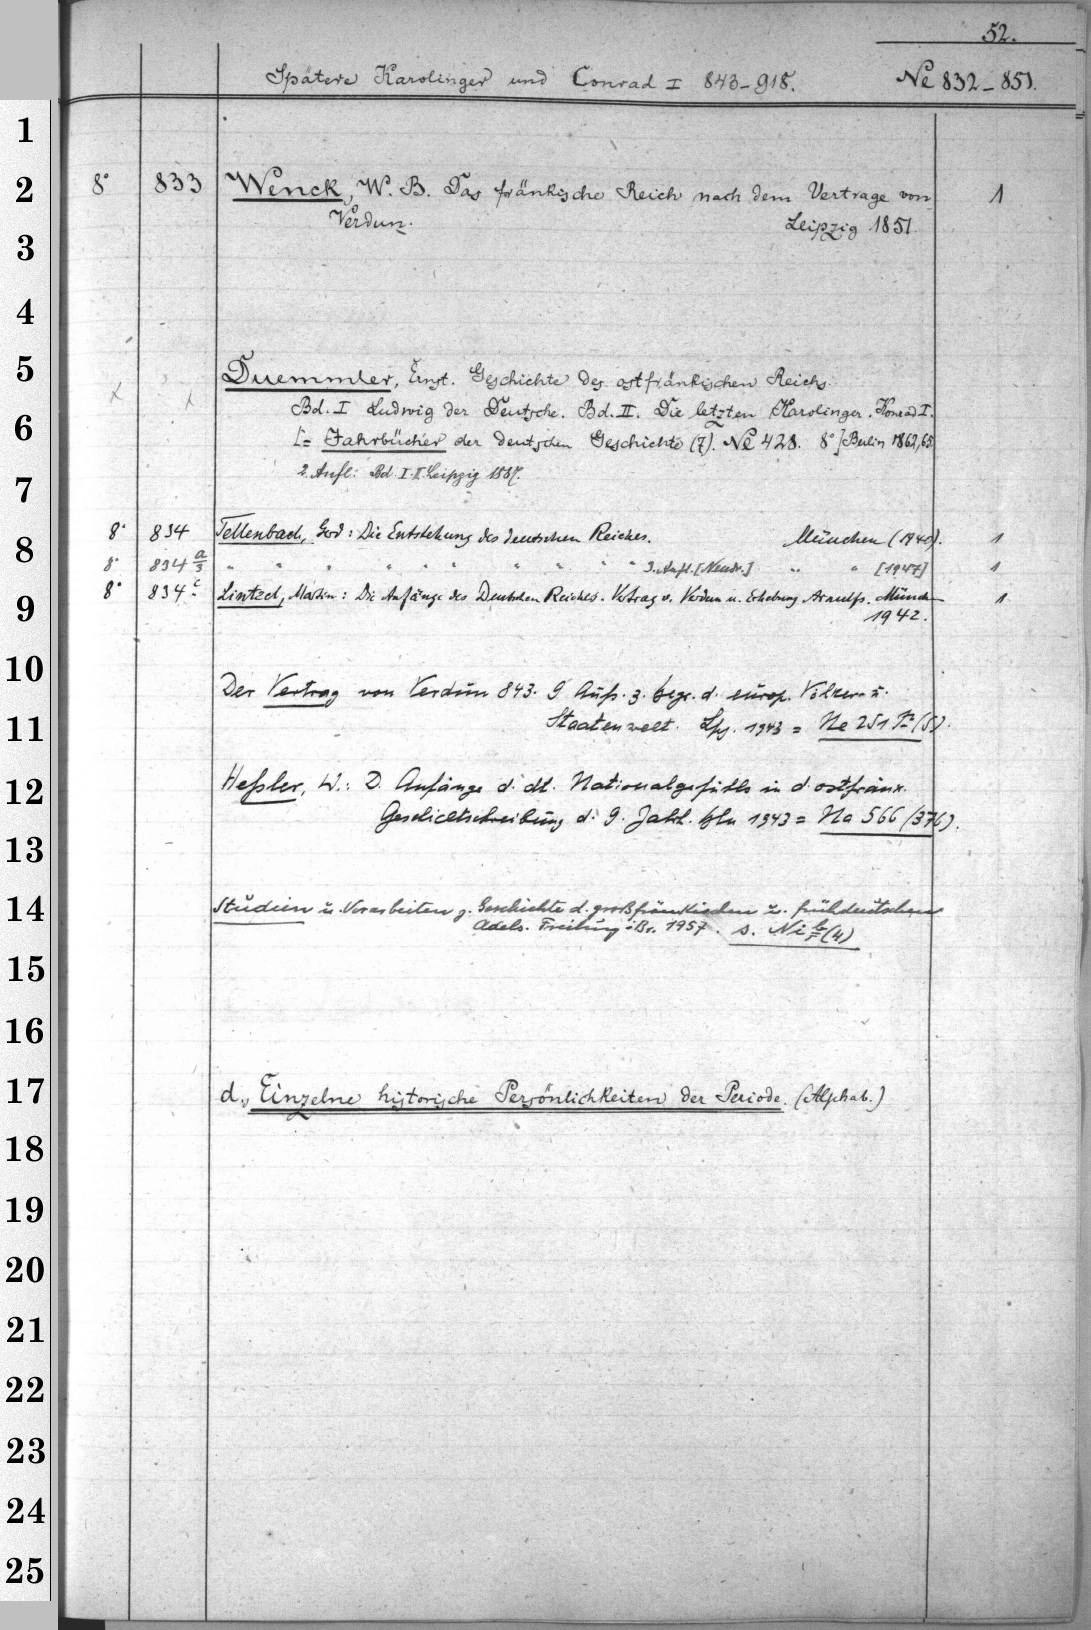 52.
Spätere Karolinger und Conrad I 843-918. Ne 832-851.
1
2
3
4
5
6
7
8
9
10
11
12
13
14
15
16
17
18
19
20
21
22
23
24
25
8° 833 Wenck, W. B. Das fränkische Reich nach dem Vertrage von 1
Verdun. Leipzig 1851
Duemmler, Ernst. Geschichte des ostfränkischen Reichs.
Bd. I Ludwig der Deutsche. Bd. II. Die letzten Karolinger. Konrad I.
[= Jahrbücher der deutschen Geschichte (7). Ne 428. 8°] Berlin 1862,65
2. Aufl: Bd. I. II. Leipzig 1887.
8° 834 Tellenbach, Gerd: Die Entstehung des deutschen Reiches. München (1940). 1
8° 834 a/3 " " " " " " " " " " 3. Aufl. [Neudr.] " " [1947] 1
8° 834 c Lintzel, Martin: Die Anfänge des Deutschen Reiches. Vertrag v. Verdun u. Erhebung Arnulfs. Münch 1
1942.
Der Vertrag von Verdun 843. 9 Aufs. z. begr. d. europ. Völker- u.
Staatenwelt. Lpz. 1943 = Ne 251 (5).
Heßler, W.: D. Anfänge d. dt. Nationalgefühls in d. ostfränk.
Geschichtschreibung d. 9. Jahrh. Bln 1943 = Na 566 (376).
Studien u. Vorarbeiten z. Geschichte d. großfränkischen u. frühdeutschen
Adels. Freiburg i. Br. 1957. s. Ni (4)
d., Einzelne historische Persönlichkeiten der Periode. (Alphab.)